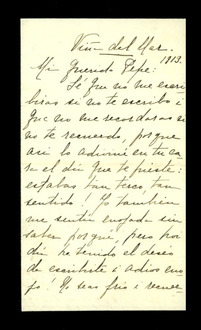 Viña del Mar.
1913.
Mi Querido Pepe:
Sé que no me escri
biras si no te escribo i
que no me recordaras si
no te recuerdo, porque
asi lo adiviné en tu ca
ra el dia que te
estabas tan terco, tan
sentido! Yo tambien
me sentí enojada sin
saber porqué, pero hoi
dia he tenido el deseo
de escribirte i adios eno
jo! No seas frio i